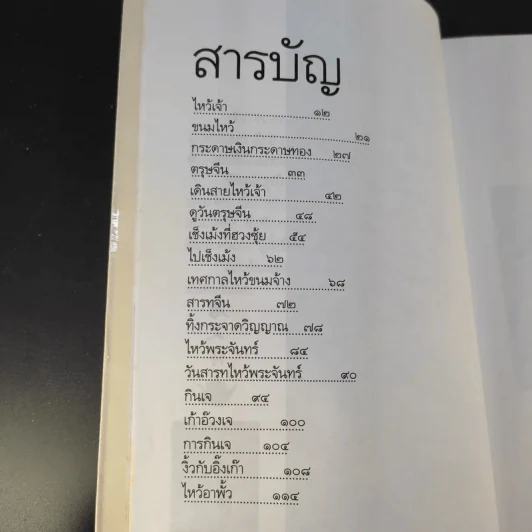 สารบัญ
ไหว้เจ้า ๑๒
ขนมไหว้ ๒๑
กระดาษเงินกระดาษทอง ๒๗
ตรุษจีน ๓๓
เดินสายไหว้เจ้า ๔๒
ดูวันตรุษจีน ๔๘
เช็งเม้งที่ฮวงซุ้ย ๕๔
ไปเช็งเม้ง ๖๒
เทศกาลไหว้ขนมจ้าง ๖๘
สารทจีน ๗๒
ทิ้งกระจาดวิญญาณ ๗๘
ไหว้พระจันทร์ ๘๔
วันสารทไหว้พระจันทร์ ๙๐
กินเจ ๙๔
เก้าอ๊วงเจ ๑๐๐
การกินเจ ๑๐๔
งิ้วกับอิ๊งเก๊า ๑๐๘
ไหว้อาพั้ว ๑๑๔